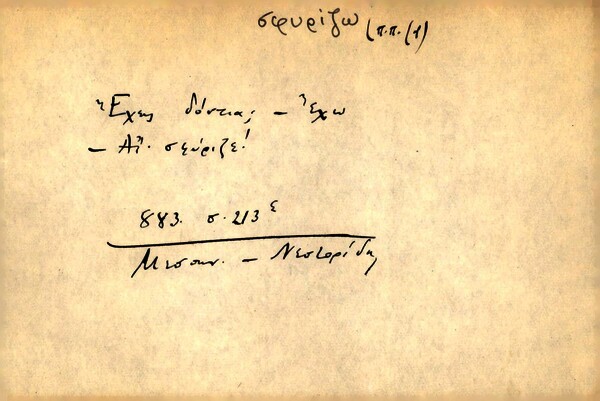 σφυρίζω (π.π. (1)
Ἔχεις δόντια; – Ἔχω
– Αἴ. σφύριζε!
883. σ. 213 ε
Μεσσην. – Νεστορίδης